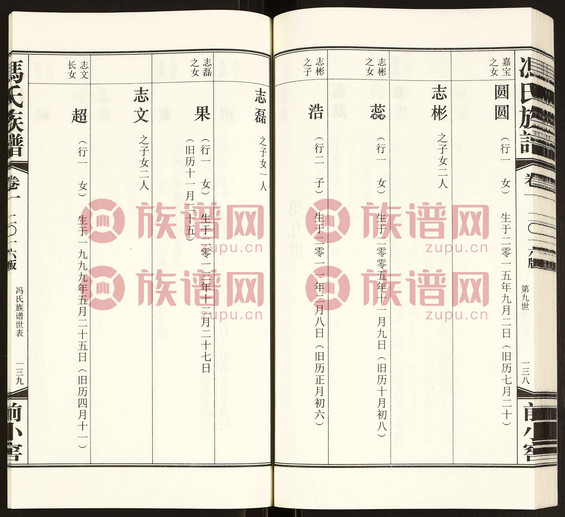 冯氏族谱
卷一
二〇一六版
第九世
一三八
前小窖
嘉宝之女
圆圆
（行一 女） 生于二零一五年九月二日（旧历七月二十）
志彬
之子女二人
志彬之女
蕊
（行一 女） 生于二零零五年十一月九日（旧历十月初八）
志彬之子
浩
（行二 子） 生于二零一一年二月八日（旧历正月初六）
志磊
之子女一人
志磊之女
果
（行一 女） 生于二零一二年十二月二十七日
（旧历十一月二十五）
志文
之子女二人
志文长女
超
（行一 女） 生于一九九九年五月二十五日（旧历四月十一）
馮氏族譜
卷一
二〇一六版
冯氏族谱世表
一三九
前小窖
族谱网
zupu.cn
族谱网
zupu.cn
族谱网
zupu.cn
族谱网
zupu.cn